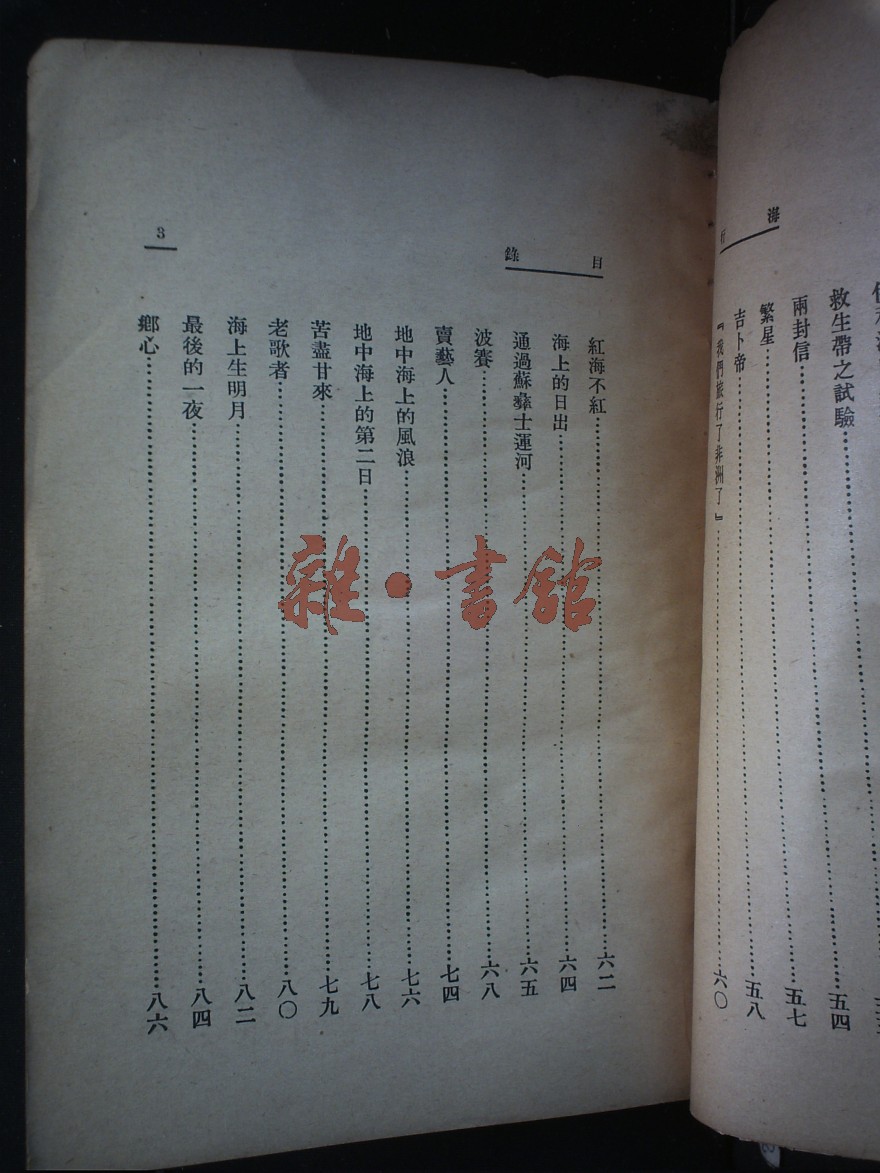 海行
救生帶之試驗……五四
兩封信……五七
繁星……五八
吉卜帝……
『我們旅行了非洲了』……六〇
目錄
3
紅海不紅……六二
海上的日出……六四
通過蘇彝士運河……六五
波賽……六八
賣藝人……七四
地中海上的風浪……七六
地中海上的第二日……七八
苦盡甘來……七九
老歌者……八〇
海上生明月……八二
最後的一夜……八四
鄉心……八六
雜·書館